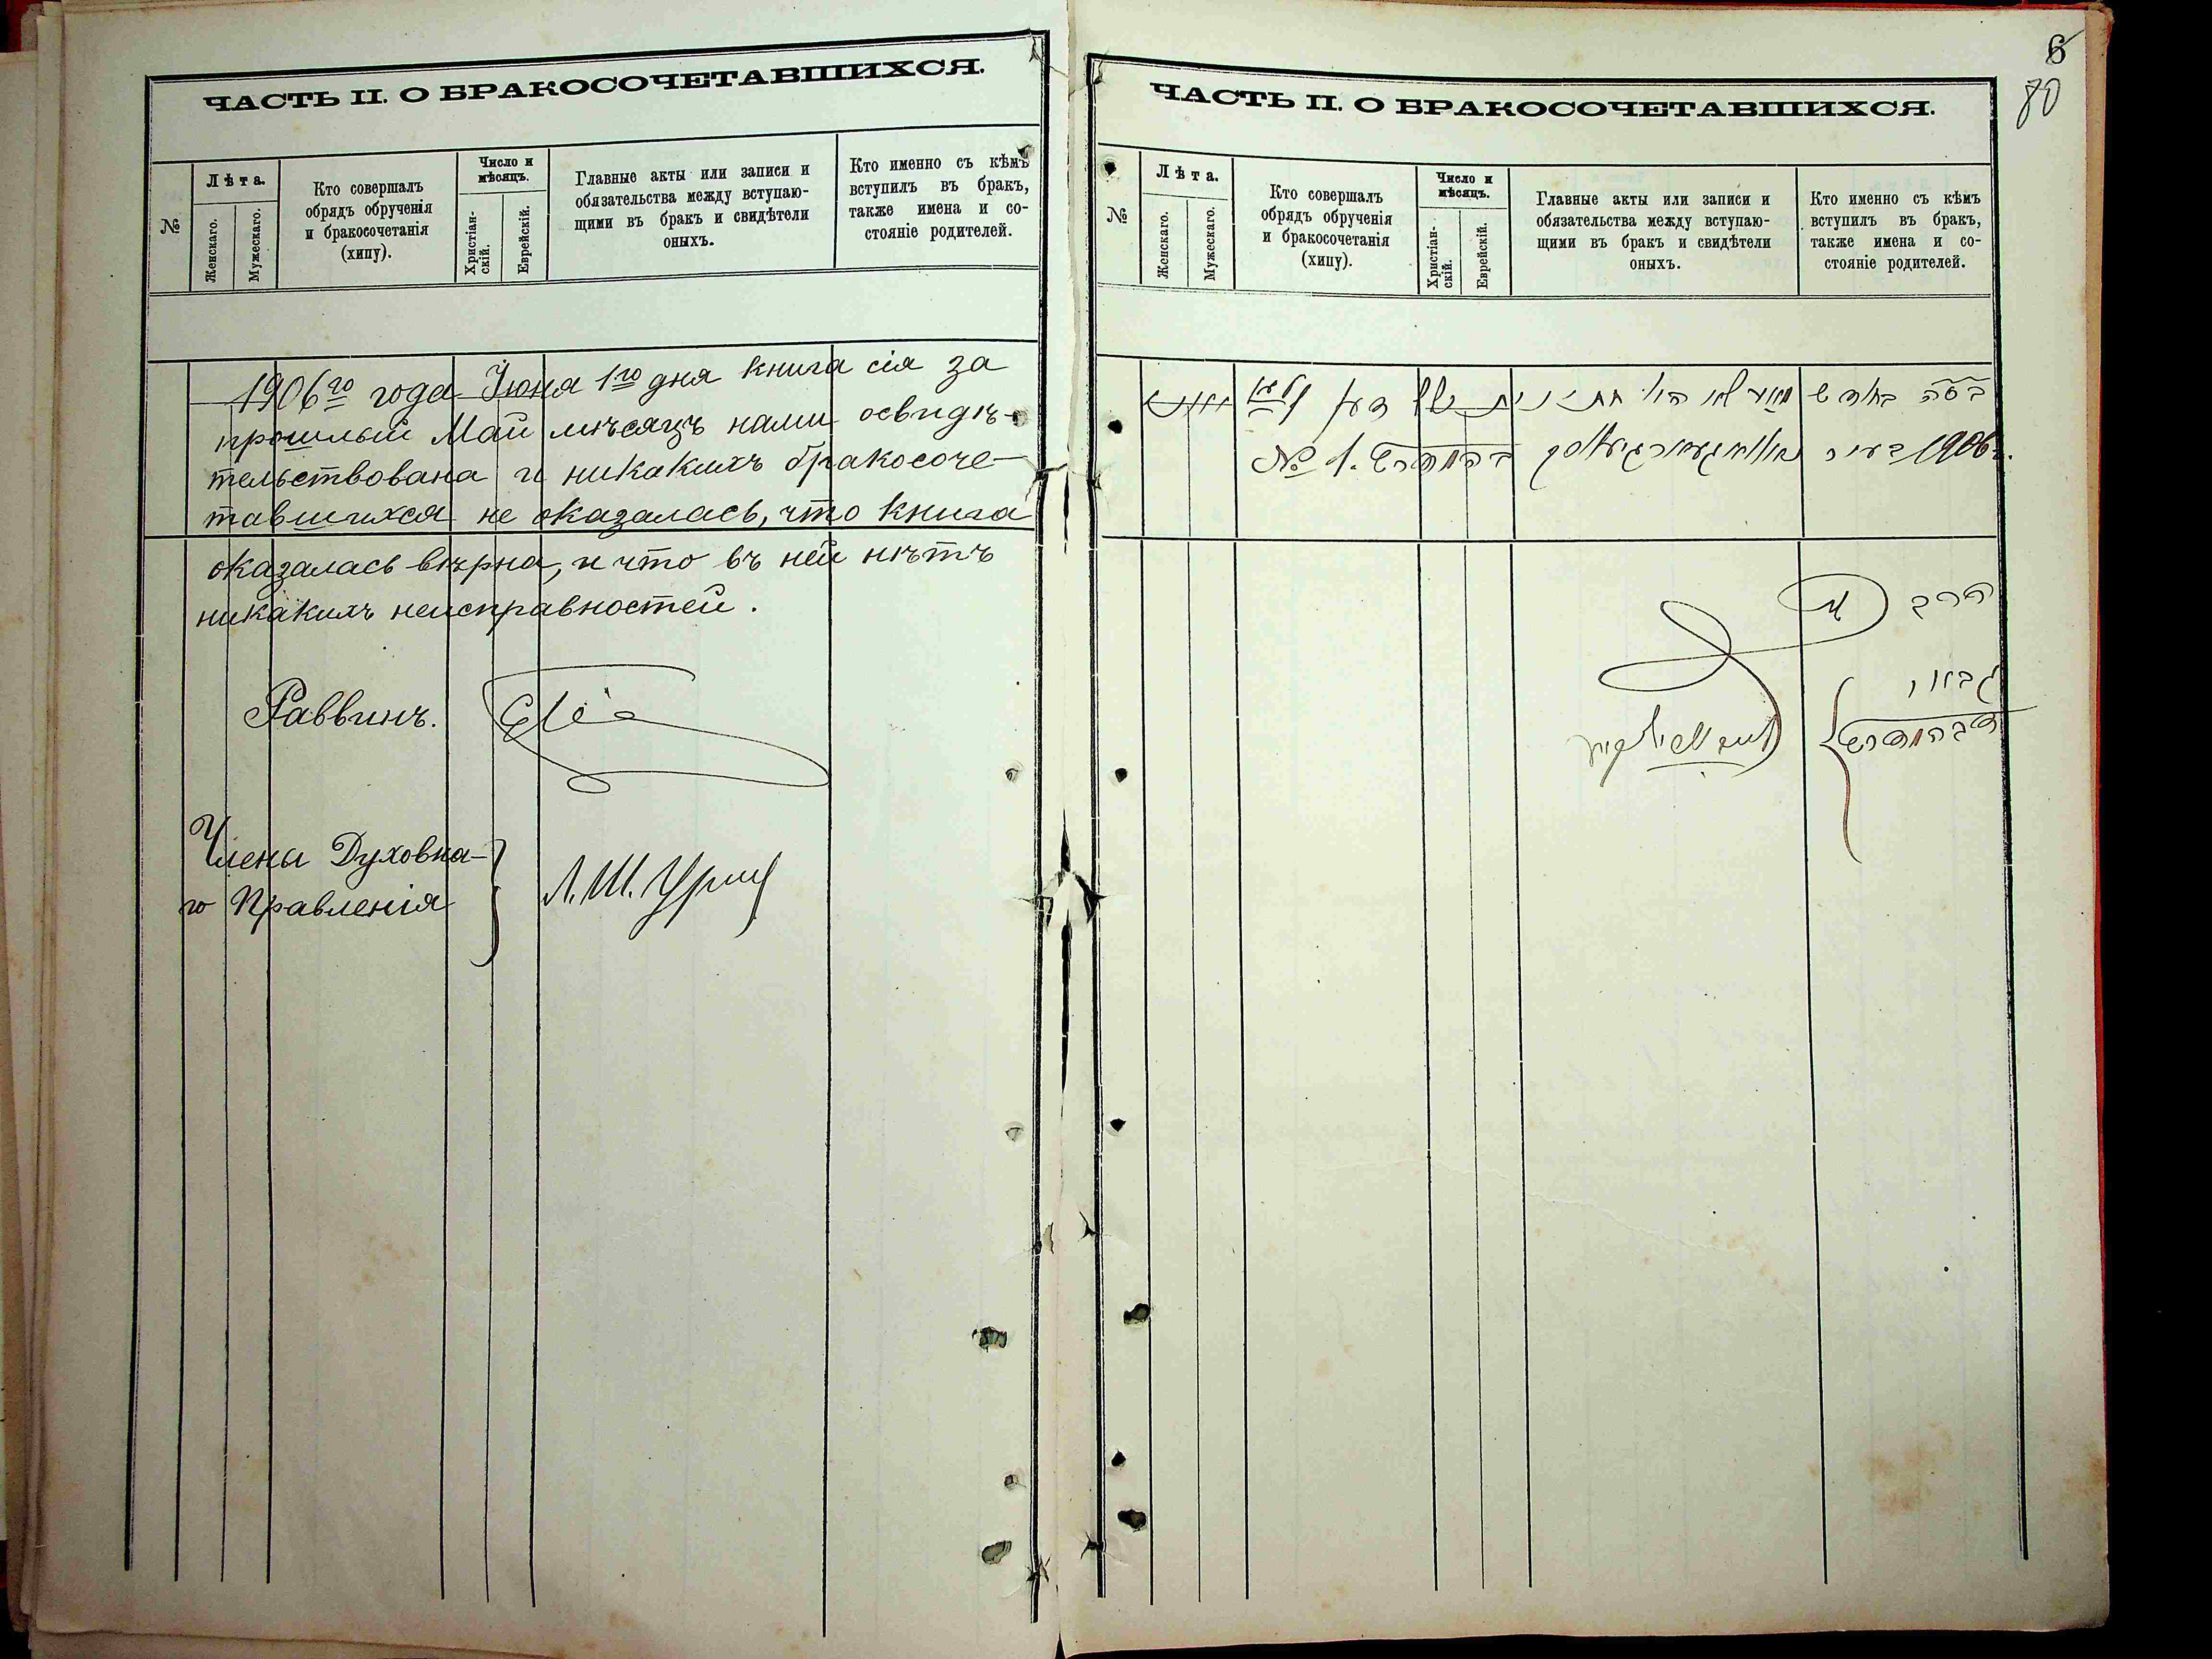 ЧАСТЬ II. О БРАКОСОЧЕТАВШИХСЯ.
№
Лѣта.
Женскаго.
Мужескаго.
Кто совершалъ
обрядъ обрученія
и бракосочетанія
(хипу).
Число и
мѣсяцъ.
Христіан-
скій.
Еврейскій.
Главные акты или записи и
обязательства между вступаю-
щими въ бракъ и свидѣтели
оныхъ.
Кто именно съ кѣмъ
вступилъ въ бракъ,
также имена и со-
стояніе родителей.
1906го года Іюня 1го дня книга сія за
прошлый Май мѣсяцъ нами освидѣ-
тельствована и никакихъ бракосоче-
тавшихся не оказалась, что книга
оказалась вѣрна, и что въ ней нѣтъ
никакихъ неисправностей.
Раввинъ.
Члены Духовна-
го Правленія
6
80
ЧАСТЬ II. О БРАКОСОЧЕТАВШИХСЯ.
№
Лѣта.
Женскаго.
Мужескаго.
Кто совершалъ
обрядъ обрученія
и бракосочетанія
(хипу).
Число и
мѣсяцъ.
Христіан-
скій.
Еврейскій.
Главные акты или записи и
обязательства между вступаю-
щими въ бракъ и свидѣтели
оныхъ.
Кто именно съ кѣмъ
вступилъ въ бракъ,
также имена и со-
стояніе родителей.
בחדש
1906 בעיר № 1.
הרב
גבאי